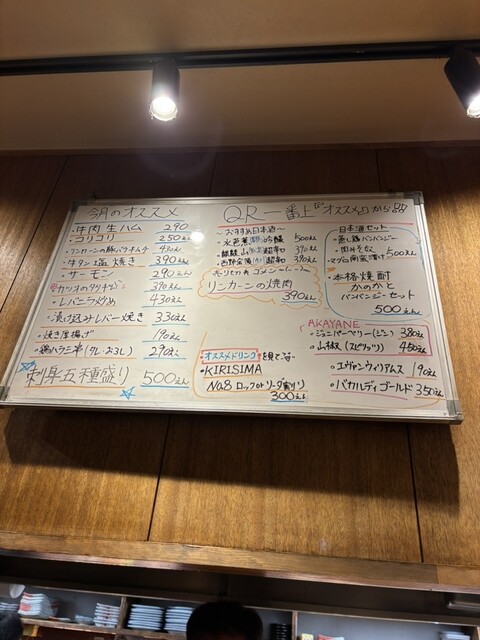 今月のオススメ
・牛肉生ハム 290
・コリコリ 250えん
・リンカーンの豚バラキムチ 430えん
・牛タン塩焼き 390えん
・サーモン 290えん
・カツオのタタキ 390えん
・レバニラ炒め 430えん
・漬け込みレバー焼き 330えん
・焼き厚揚げ 190えん
・鶏ハラミ串(タレ・おろし) 290えん
刺身五種盛り 500えん
QR一番上"オススメ"から
〜おすすめ日本酒〜
・水芭蕉 吟醸 500えん
390えん
390えん
リンカーンの焼肉
390えん
オススメドリンク
・KIRISIMA
No8 ロックorソーダ割り
300えん
日本酒セット
・蒸し鶏バンバンジー
・肉みそなす
・マグロ 漬け 500えん
・本格焼酎
かのかと
バンバンジーセット
500えん
AKAYANE
・ジュニパーベリー(ジン) 380えん
・山椒(スピリッツ) 450えん
・エヴァンウィリアムス 190えん
・バカルディゴールド 350えん